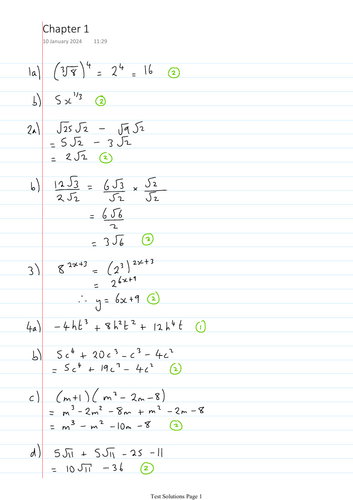 Chapter 1
10 January 2024 11:29
1a) (∛8)⁴ = 2⁴ = 16 ②
b) 5x^(1/3) ②
2a) √25√2 - √9√2
= 5√2 - 3√2
= 2√2 ②
b) 12√3/2√2 = 6√3/√2 × √2/√2
= 6√6/2
= 3√6 ③
3) 8^(2x+3) = (2³)^(2x+3)
= 2^(6x+9)
∴ y = 6x+9 ②
4a) -4ht³ + 8h²t² + 12h⁴t ①
b) 5c⁴ + 20c³ - c³ - 4c²
= 5c⁴ + 19c³ - 4c² ②
c) (m+1)(m² - 2m - 8)
= m³ - 2m² - 8m + m² - 2m - 8
= m³ - m² - 10m - 8 ②
d) 5√11 + 5√11 - 25 - 11
= 10√11 - 36 ②
Test Solutions Page 1